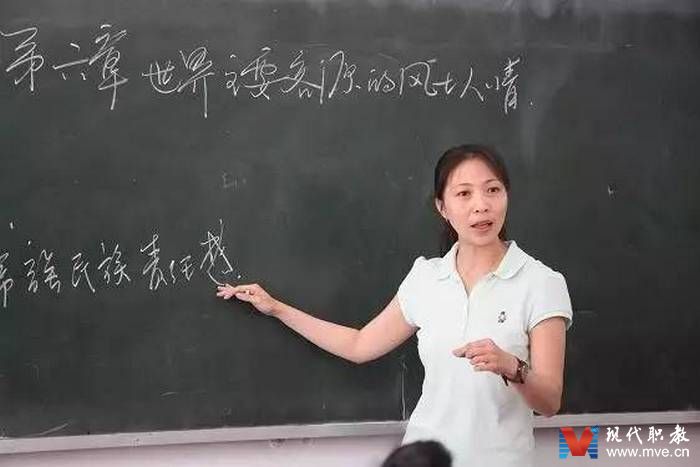 第六章 世界主要客源的风土人情.
民族 责任感
现代职教
www.mve.cn